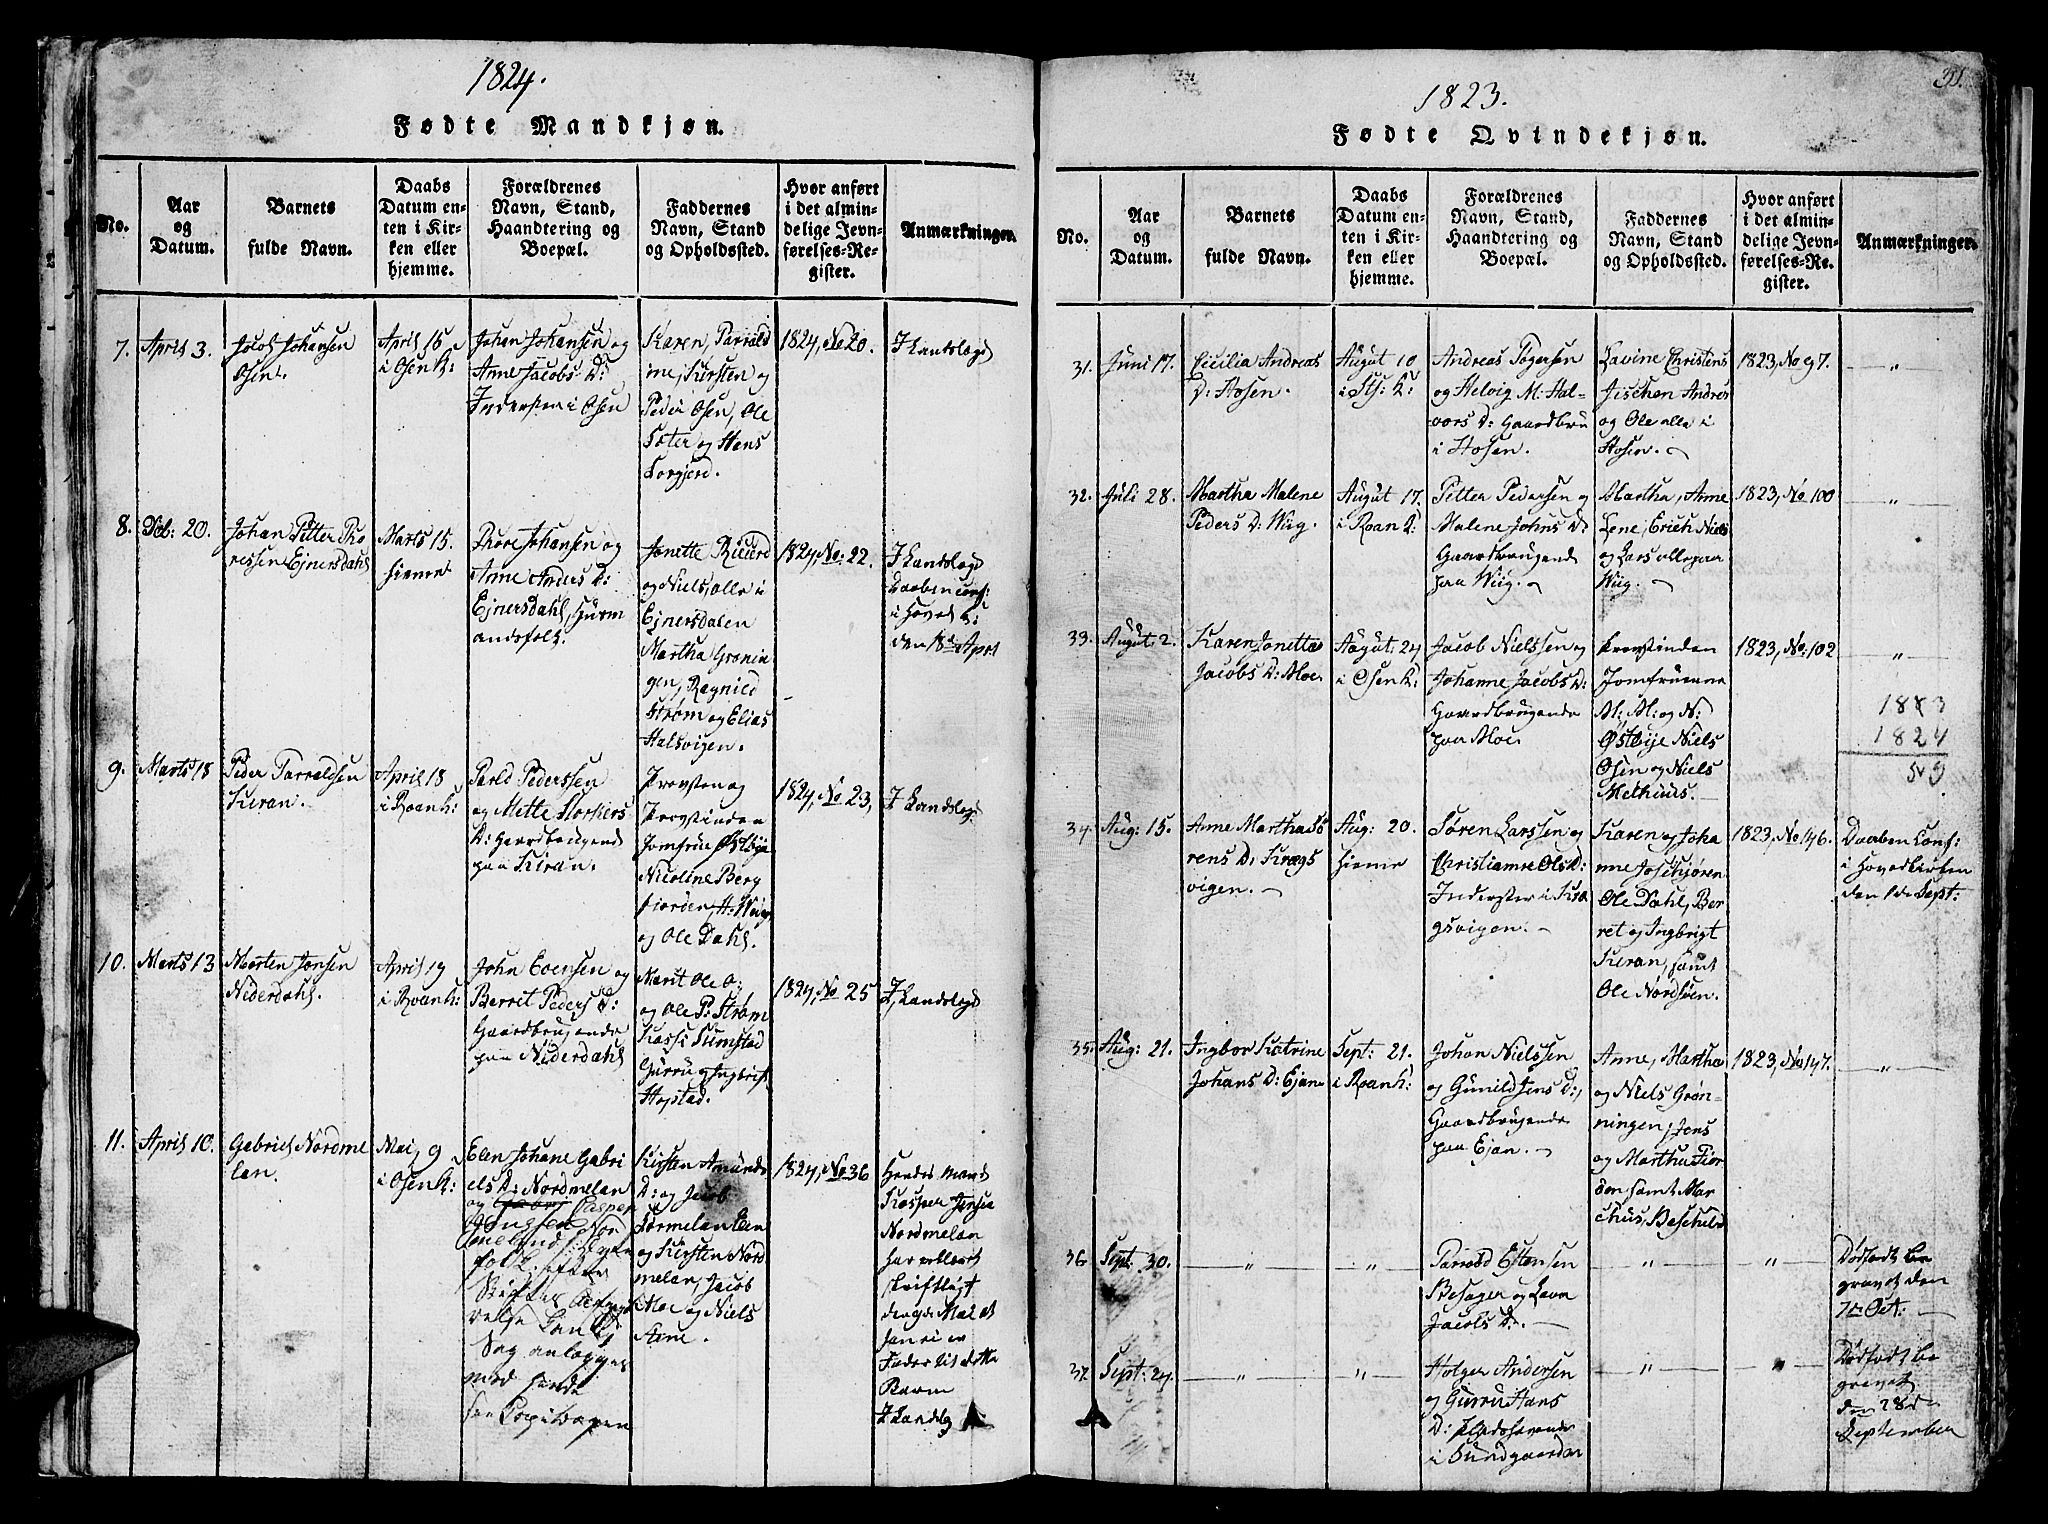 1824.
Fødte Mandkjøn.
No.
Aar
og
Datum.
Barnets
fulde Navn.
Daabs
Datum en-
ten i Kir-
ken eller
hjemme.
Forældrenes
Navn, Stand,
Haandtering og
Boepæl.
Faddernes
Navn, Stand
og Opholdssted.
Hvor anført
i det almin-
delige Jevn-
førelses-Re-
gister.
Anmærkninger.
7. April 3.
Jacob Johansen
Osen.
April 16
i Osen K:
Johan Johansen og
Anne Jacobs D:
Inderster i Osen
Karen, Tarrald
ine, Kirsten og
Peder Osen, Ole
Sæter og Hens
1824, No 20.
J Landslagd
8. Feb: 20.
Johan Petter Tho
ressen Ejnersdahl
Marts 15.
hiemme
Thore Johansen og
Anne Anders D:
Ejnersdahl, Huusm
andsfolk.
Jonette, Ricierd
og Niels, alle i
Ejnersdalen
Martha Grønin
gen, Ragnild
Strøm og Elias
Halsvigen.
1824, No: 22.
J Landslagd
Daaben conf:
i Hoved K:
den 18de April
9. Marts 18
Peder Tarraldsen
Kiran.
April 18
i Roan K:
Tarld Pederssen
og Mette Torkers
D: Gaardbrugende
paa Kiran.
Provsten og
Provstinden
Jomfrue Østbye
Nicoline Berg
fiorden, H: Weig
og Ole Dahl.
1824, No 23,
J Landslagd
10. Marts 13
Morten Jonsen
Niderdahl.
April 19
i Roan K:
John Evensen og
Berret Peders D:
Gaardbrugende
paa Niderdahl
Marit Ole O:
og Ole P: Strøm
Kassi Sumstad
Gurru og Ingbrigt
Hopstad.
1824, No 25
J Landslagd
11. April 10.
Gabriel Nordme
lan.
Mai 9
i Osen K:
Elen Johane Gabri
els D: Nordmelan
og Casper
Nord
meland
folk, efter
Lovbogen
Kirsten Amunds
D: og Jacob
Sørmelan Elen
og Kirsten Nord
melan, Jacob
Moe og Niels
1824, No 36
Hendes Mand
Kasper Jensen
Nordmelan
har erklæret
skriftligt
den 9de Mai at
han ei er
Fader til dette
Barn
J Landslg
1823.
31.
Fødte Qvindekjøn.
No.
Aar
og
Datum.
Barnets
fulde Navn.
Daabs
Datum en-
ten i Kir-
ken eller
hjemme.
Forældrenes
Navn, Stand,
Haandtering og
Boepæl.
Faddernes
Navn, Stand
og Opholdssted.
Hvor anført
i det almin-
delige Jevn-
førelses-Re-
gister.
Anmærkninger.
31. Juni 17.
Cicilia Andreas
D: Hosen.
August 10
i St: K:
Andreas Togersen
og Helvig M: Hal-
vors D: Gaardbru
i Hosen.
Lavine Christens
Jischen Andrea
og Ole alle i
Hosen.
1823, No 97.
"
32. Juli 28.
Martha Malene
Peders D: Wiig.
August 17.
i Roan K:
Petter Pedersen og
Malene Johns D:
Gaardbrugende
paa Wiig.
Martha, Anne
Lene, Erich Niels
og Lars alle paa
Wiig.
1823, No: 100
"
33. August 2.
Karen Jonetta
Jacobs D: Moe.
August 24
i Osen K:
Jacob Nielssen og
Johanne Jacobs D:
Gaardbrugende
paa Moe
Provstinden
Jomfruerne
M: M: og N:
Østbye Niels
Osen og Niels
Methuus.
1823, No: 102
"
1823
1824
59
34. Aug: 15.
Anne Martha Sø
rens D: Krægs
vigen.
Aug: 20.
hieme
Søren Larssen og
Christianne Ols D:
Inderster i Kræ
gsvigen.
Karen og Joha
nne Josephjøren
Ole Dahl, Ber
ret og Ingbrigt
Kiran, samt
Ole Nordsøen.
1823, No 146.
Daaben Conf:
i Hovedkirken
den 1de Sept:
35. Aug: 21.
Ingbor Katrine
Johans D: Ejan
Sept: 21.
i Roan K:
Johan Nielssen
og Gunild Jens D:,
Gaardbrugende
paa Ejan.
Anne, Martha
og Niels Grøn-
ningen, Jens
og Martha Fior
den samt Mar
chus, Beschelan
1823, No 147.
"
36 Sept: 30.
"
"
Tarrald Estensen
Besager og Lava
Jacobs D:
"
"
Dødfødt be
gravet den
7de Oct:
37 Sept: 24.
"
"
Holger Andersen
og Gurru Hans
D:
i Sundgaarden
"
"
Dødfødt be
gravet
den 28de
September